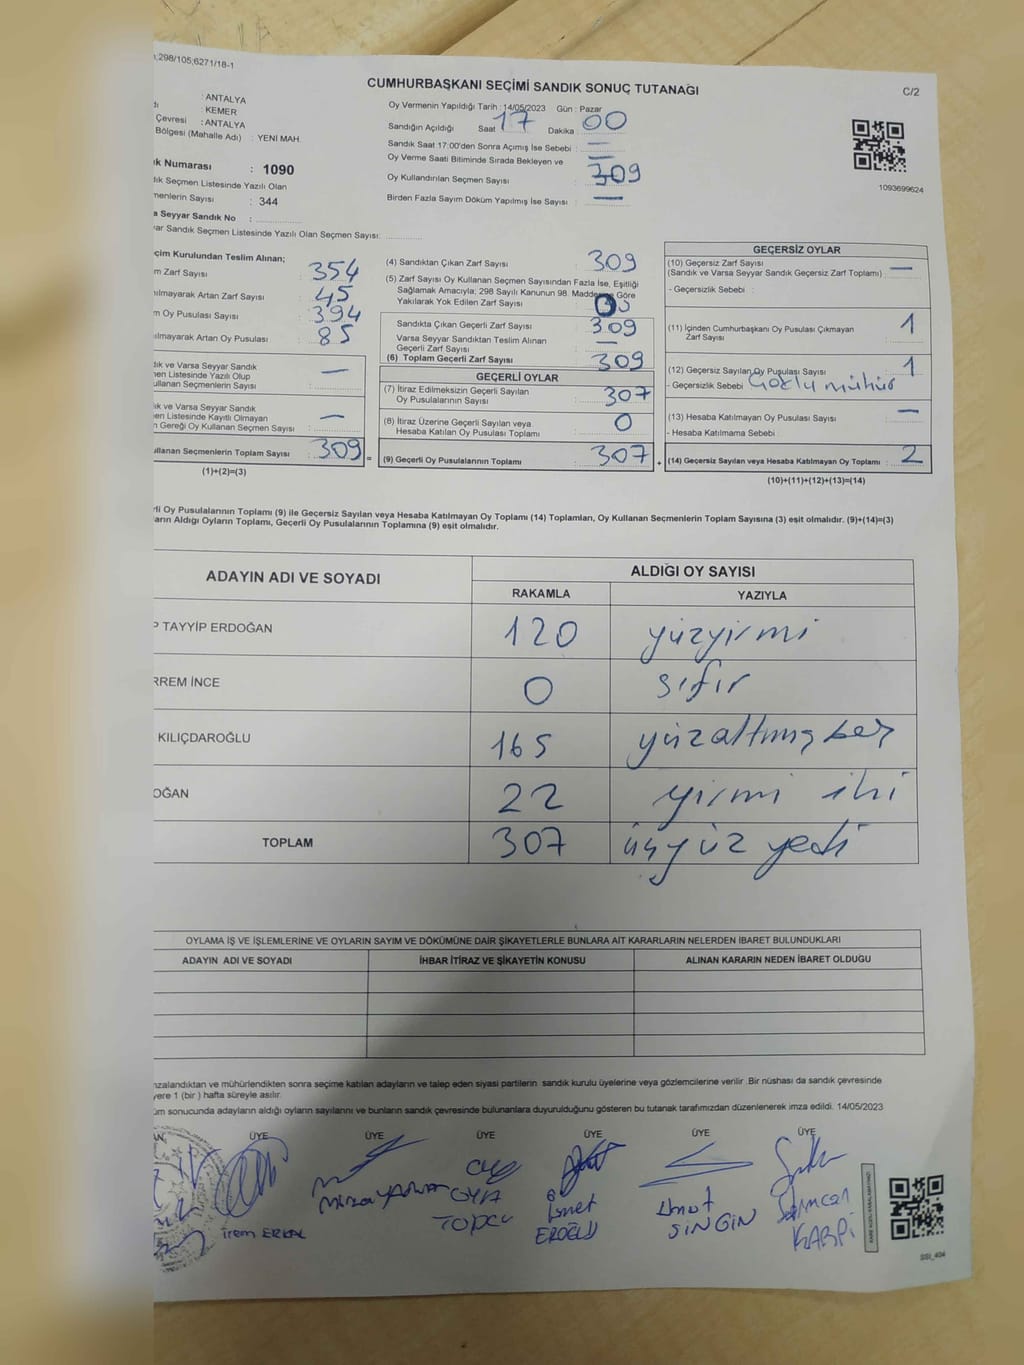 298/105;6271/18-1
CUMHURBAŞKANI SEÇİMİ SANDIK SONUÇ TUTANAĞI
C/2
: ANTALYA
: KEMER
Çevresi : ANTALYA
Bölgesi (Mahalle Adı) : YENİ MAH.
Numarası : 1090
Seçmen Listesinde Yazılı Olan
Sayısı : 344
Seyyar Sandık No :
Sandık Seçmen Listesinde Yazılı Olan Seçmen Sayısı:
Oy Vermenin Yapıldığı Tarih : 14/05/2023 Gün : Pazar
Sandığın Açıldığı Saat 17 Dakika : 00
Sandık Saat 17:00'den Sonra Açımış İse Sebebi : —
Oy Verme Saati Bitiminde Sırada Bekleyen ve —
Oy Kullandırılan Seçmen Sayısı : 309
Birden Fazla Sayım Döküm Yapılmış İse Sayısı : —
1093699624
Kurulundan Teslim Alınan;
Zarf Sayısı : 354
Artan Zarf Sayısı : 45
Oy Pusulası Sayısı : 394
Artan Oy Pusulası : 85
ve Varsa Seyyar Sandık
Listesinde Yazılı Olup
Seçmenlerin Sayısı : —
ve Varsa Seyyar Sandık
Listesinde Kayıtlı Olmayan
Gereği Oy Kullanan Seçmen Sayısı : —
Seçmenlerin Toplam Sayısı : 309 =
(1)+(2)=(3)
(4) Sandıktan Çıkan Zarf Sayısı : 309
(5) Zarf Sayısı Oy Kullanan Seçmen Sayısından Fazla İse, Eşitliği
Sağlamak Amacıyla; 298 Sayılı Kanunun 98. Maddesine Göre
Yakılarak Yok Edilen Zarf Sayısı
Sandıkta Çıkan Geçerli Zarf Sayısı : 309
Varsa Seyyar Sandıktan Teslim Alınan
Geçerli Zarf Sayısı : —
(6) Toplam Geçerli Zarf Sayısı : 309
GEÇERLİ OYLAR
(7) İtiraz Edilmeksizin Geçerli Sayılan
Oy Pusulalarının Sayısı : 307
(8) İtiraz Üzerine Geçerli Sayılan veya
Hesaba Katılan Oy Pusulası Toplamı : 0
(9) Geçerli Oy Pusulalarının Toplamı : 307 +
GEÇERSİZ OYLAR
(10) Geçersiz Zarf Sayısı
(Sandık ve Varsa Seyyar Sandık Geçersiz Zarf Toplamı) : —
- Geçersizlik Sebebi :
(11) İçinden Cumhurbaşkanı Oy Pusulası Çıkmayan
Zarf Sayısı : 1
(12) Geçersiz Sayılan Oy Pusulası Sayısı : 1
- Geçersizlik Sebebi : Çoklu mühür
(13) Hesaba Katılmayan Oy Pusulası Sayısı : —
- Hesaba Katılmama Sebebi :
(14) Geçersiz Sayılan veya Hesaba Katılmayan Oy Toplamı : 2
(10)+(11)+(12)+(13)=(14)
Oy Pusulalarının Toplamı (9) ile Geçersiz Sayılan veya Hesaba Katılmayan Oy Toplamı (14) Toplamları, Oy Kullanan Seçmenlerin Toplam Sayısına (3) eşit olmalıdır. (9)+(14)=(3)
Aldığı Oyların Toplamı, Geçerli Oy Pusulalarının Toplamına (9) eşit olmalıdır.
ADAYIN ADI VE SOYADI
ALDIĞI OY SAYISI
RAKAMLA YAZIYLA
TAYYİP ERDOĞAN 120 yüzyirmi
RREM İNCE 0 sıfır
KILIÇDAROĞLU 165 yüzaltmışbeş
OĞAN 22 yirmi iki
TOPLAM 307 üçyüz yedi
OYLAMA İŞ VE İŞLEMLERİNE VE OYLARIN SAYIM VE DÖKÜMÜNE DAİR ŞİKAYETLERLE BUNLARA AİT KARARLARIN NELERDEN İBARET BULUNDUKLARI
ADAYIN ADI VE SOYADI İHBAR İTİRAZ VE ŞİKAYETİN KONUSU ALINAN KARARIN NEDEN İBARET OLDUĞU
nzalandıktan ve mühürlendikten sonra seçime katılan adayların ve talep eden siyasi partilerin sandık kurulu üyelerine veya gözlemcilerine verilir .Bir nüshası da sandık çevresinde
yere 1 (bir ) hafta süreyle asılır.
üm sonucunda adayların aldığı oyların sayılarını ve bunların sandık çevresinde bulunanlara duyurulduğunu gösteren bu tutanak tarafımızdan düzenlenerek imza edildi. 14/05/2023
ÜYE ÜYE ÜYE ÜYE ÜYE ÜYE
irem ERKAL
OYA TOPCU
İsmet EROĞLU
Umut SİNGİN
KARE KODU KARALAMAYINIZ!
SSI_404